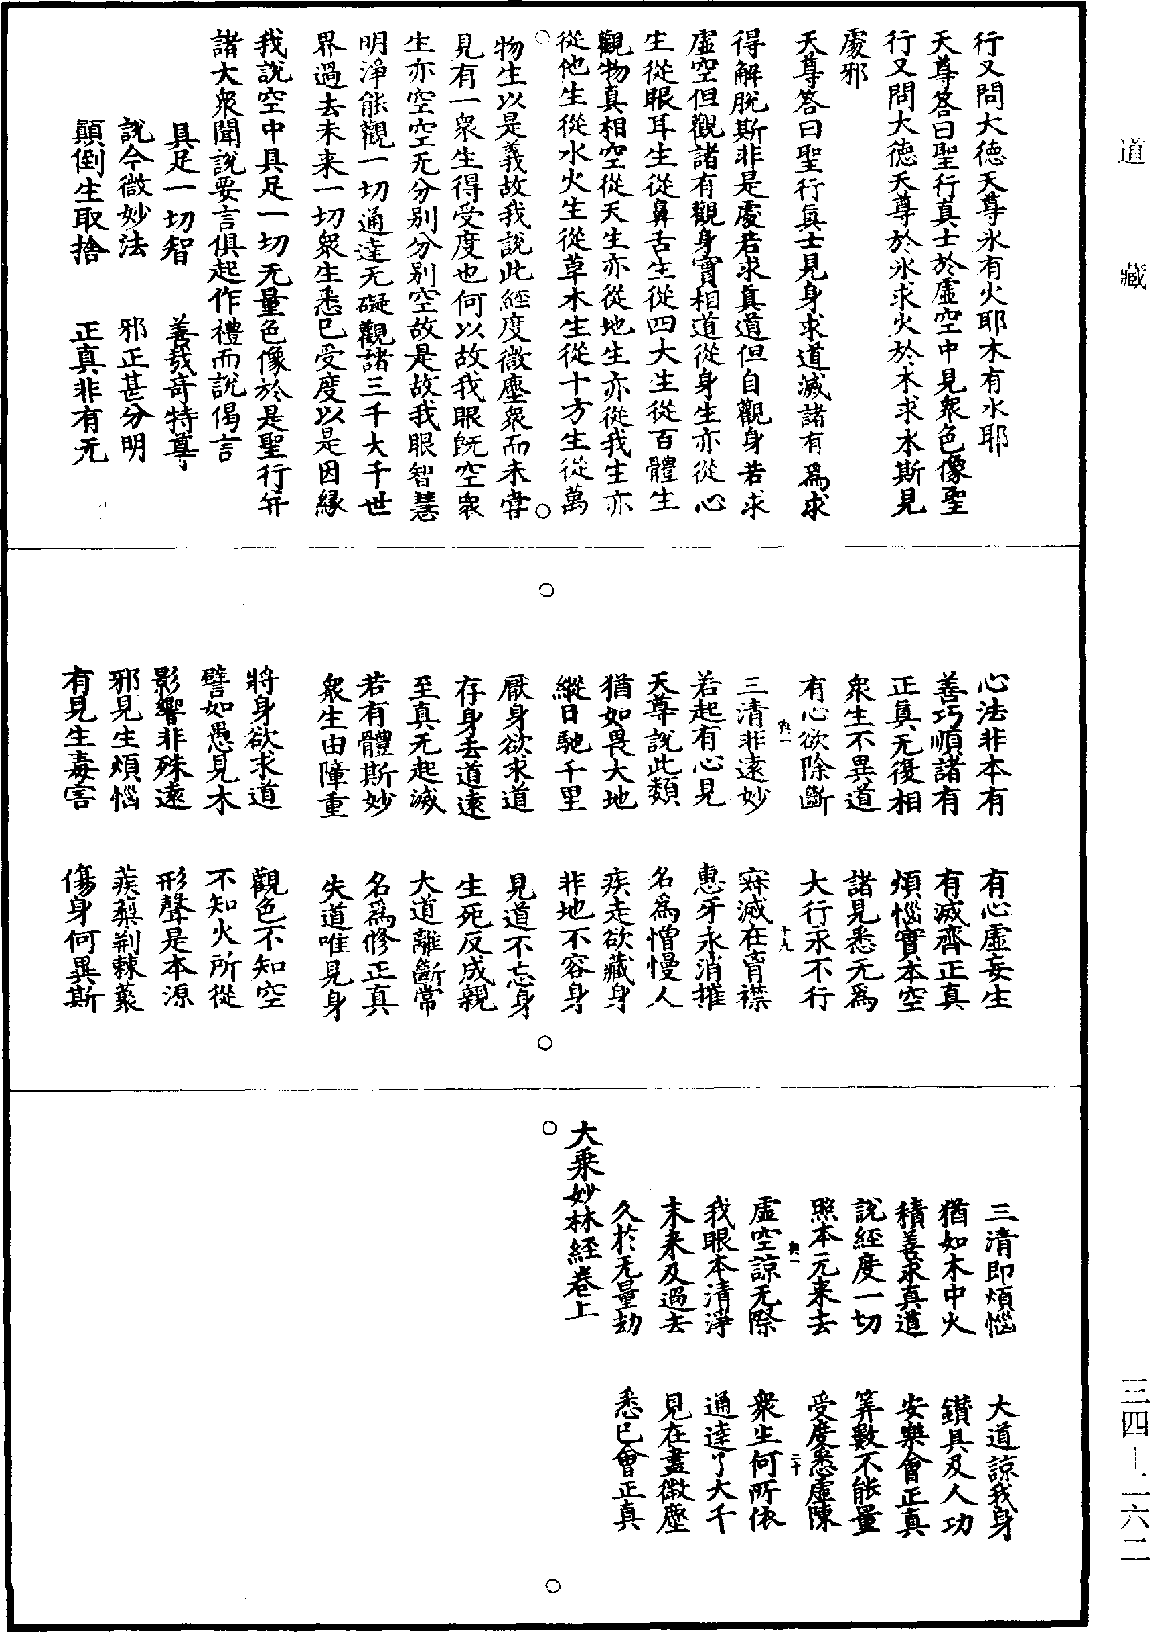 道藏
行又問大德天尊氷有火耶木有水耶
天尊答曰聖行真士於虛空中見衆色像聖
行又問大德天尊於氷求火於木求水斯見
處邪
天尊答曰聖行真士見身求道滅諸有爲求
得解脫斯非是處若求真道但自觀身若求
虛空但觀諸有觀身實相道從身生亦從心
生從眼耳生從鼻舌生從四大生從百體生
觀物真相空從天生亦從地生亦從我生亦
從他生從水火生從草木生從十方生從萬
物生以是義故我說此經度微塵衆而未甞
見有一衆生得受度也何以故我眼旣空衆
生亦空空无分別分別空故是故我眼智慧
明淨能觀一切通達无礙觀諸三千大千世
界過去未来一切衆生悉已受度以是因緣
我說空中具足一切无量色像於是聖行并
諸大衆聞說要言俱起作禮而說偈言
具足一切智　善哉奇特尊
說今微妙法　邪正甚分明
顛倒生取捨　正真非有无
心法非本有　有心虛妄生
善巧順諸有　有滅齊正真
正真无復相　煩惱實本空
衆生不異道　諸見悉无爲
有心欲除斷　大行永不行
三清非遠妙　寂滅在胷襟
若起有心見　惠牙永消摧
天尊說此類　名爲憎慢人
猶如畏大地　疾走欲藏身
縱日馳千里　非地不容身
厭身欲求道　見道不忘身
存身去道遠　生死反成親
至真无起滅　大道離斷常
若有體斯妙　名爲修正真
衆生由障重　失道唯見身
將身欲求道　觀色不知空
譬如愚見木　不知火所從
影響非殊遠　形聲是本源
邪見生煩惱　蒺䔧荆棘藂
有見生毒害　傷身何異斯
三清即煩惱　大道諒我身
猶如木中火　鑚具及人功
積善求真道　安樂會正真
說經度一切　筭數不能量
照本元来去　受度悉虛陳
虛空諒无際　衆生何所依
我眼本清淨　通達了大千
未来及過去　見在盡微塵
久於无量劫　悉已會正真
大乘妙林經卷上
三四—二六二